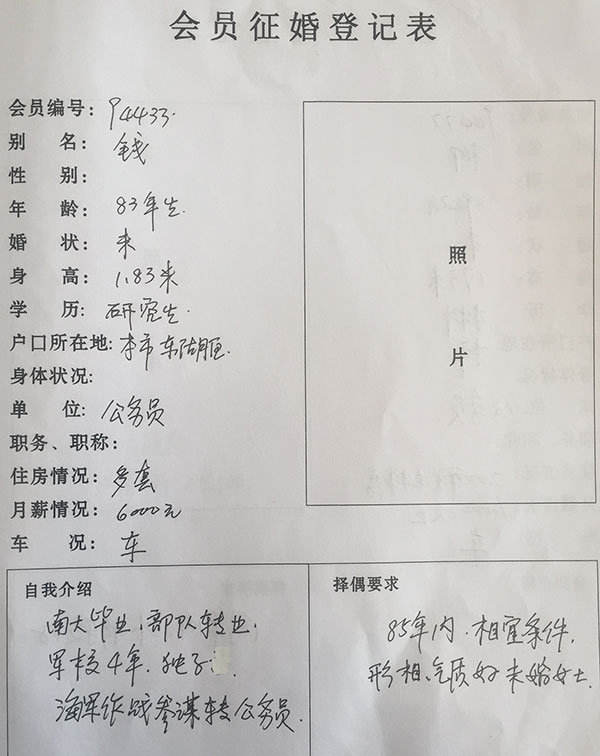 会员征婚登记表
会员编号: 94433
别 名: 钱
性 别:
年 龄: 83年生
婚 状: 未
身 高: 1.83米
学 历: 研究生
户口所在地: 本市东湖区
身体状况:
单 位: 公务员
职务、职称:
住房情况: 多套
月薪情况: 6000元
车 况: 车
照
片
自我介绍
南大毕业,部队转业,
军校4年.独子
海军作战参谋转公务员.
择偶要求
85年内.相宜条件,
形相、气质好未婚女士.